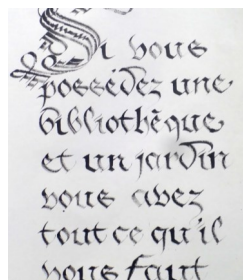 Si vous
possédez une
bibliothèque
et un jardin
vous avez
tout ce qu'il
vous faut